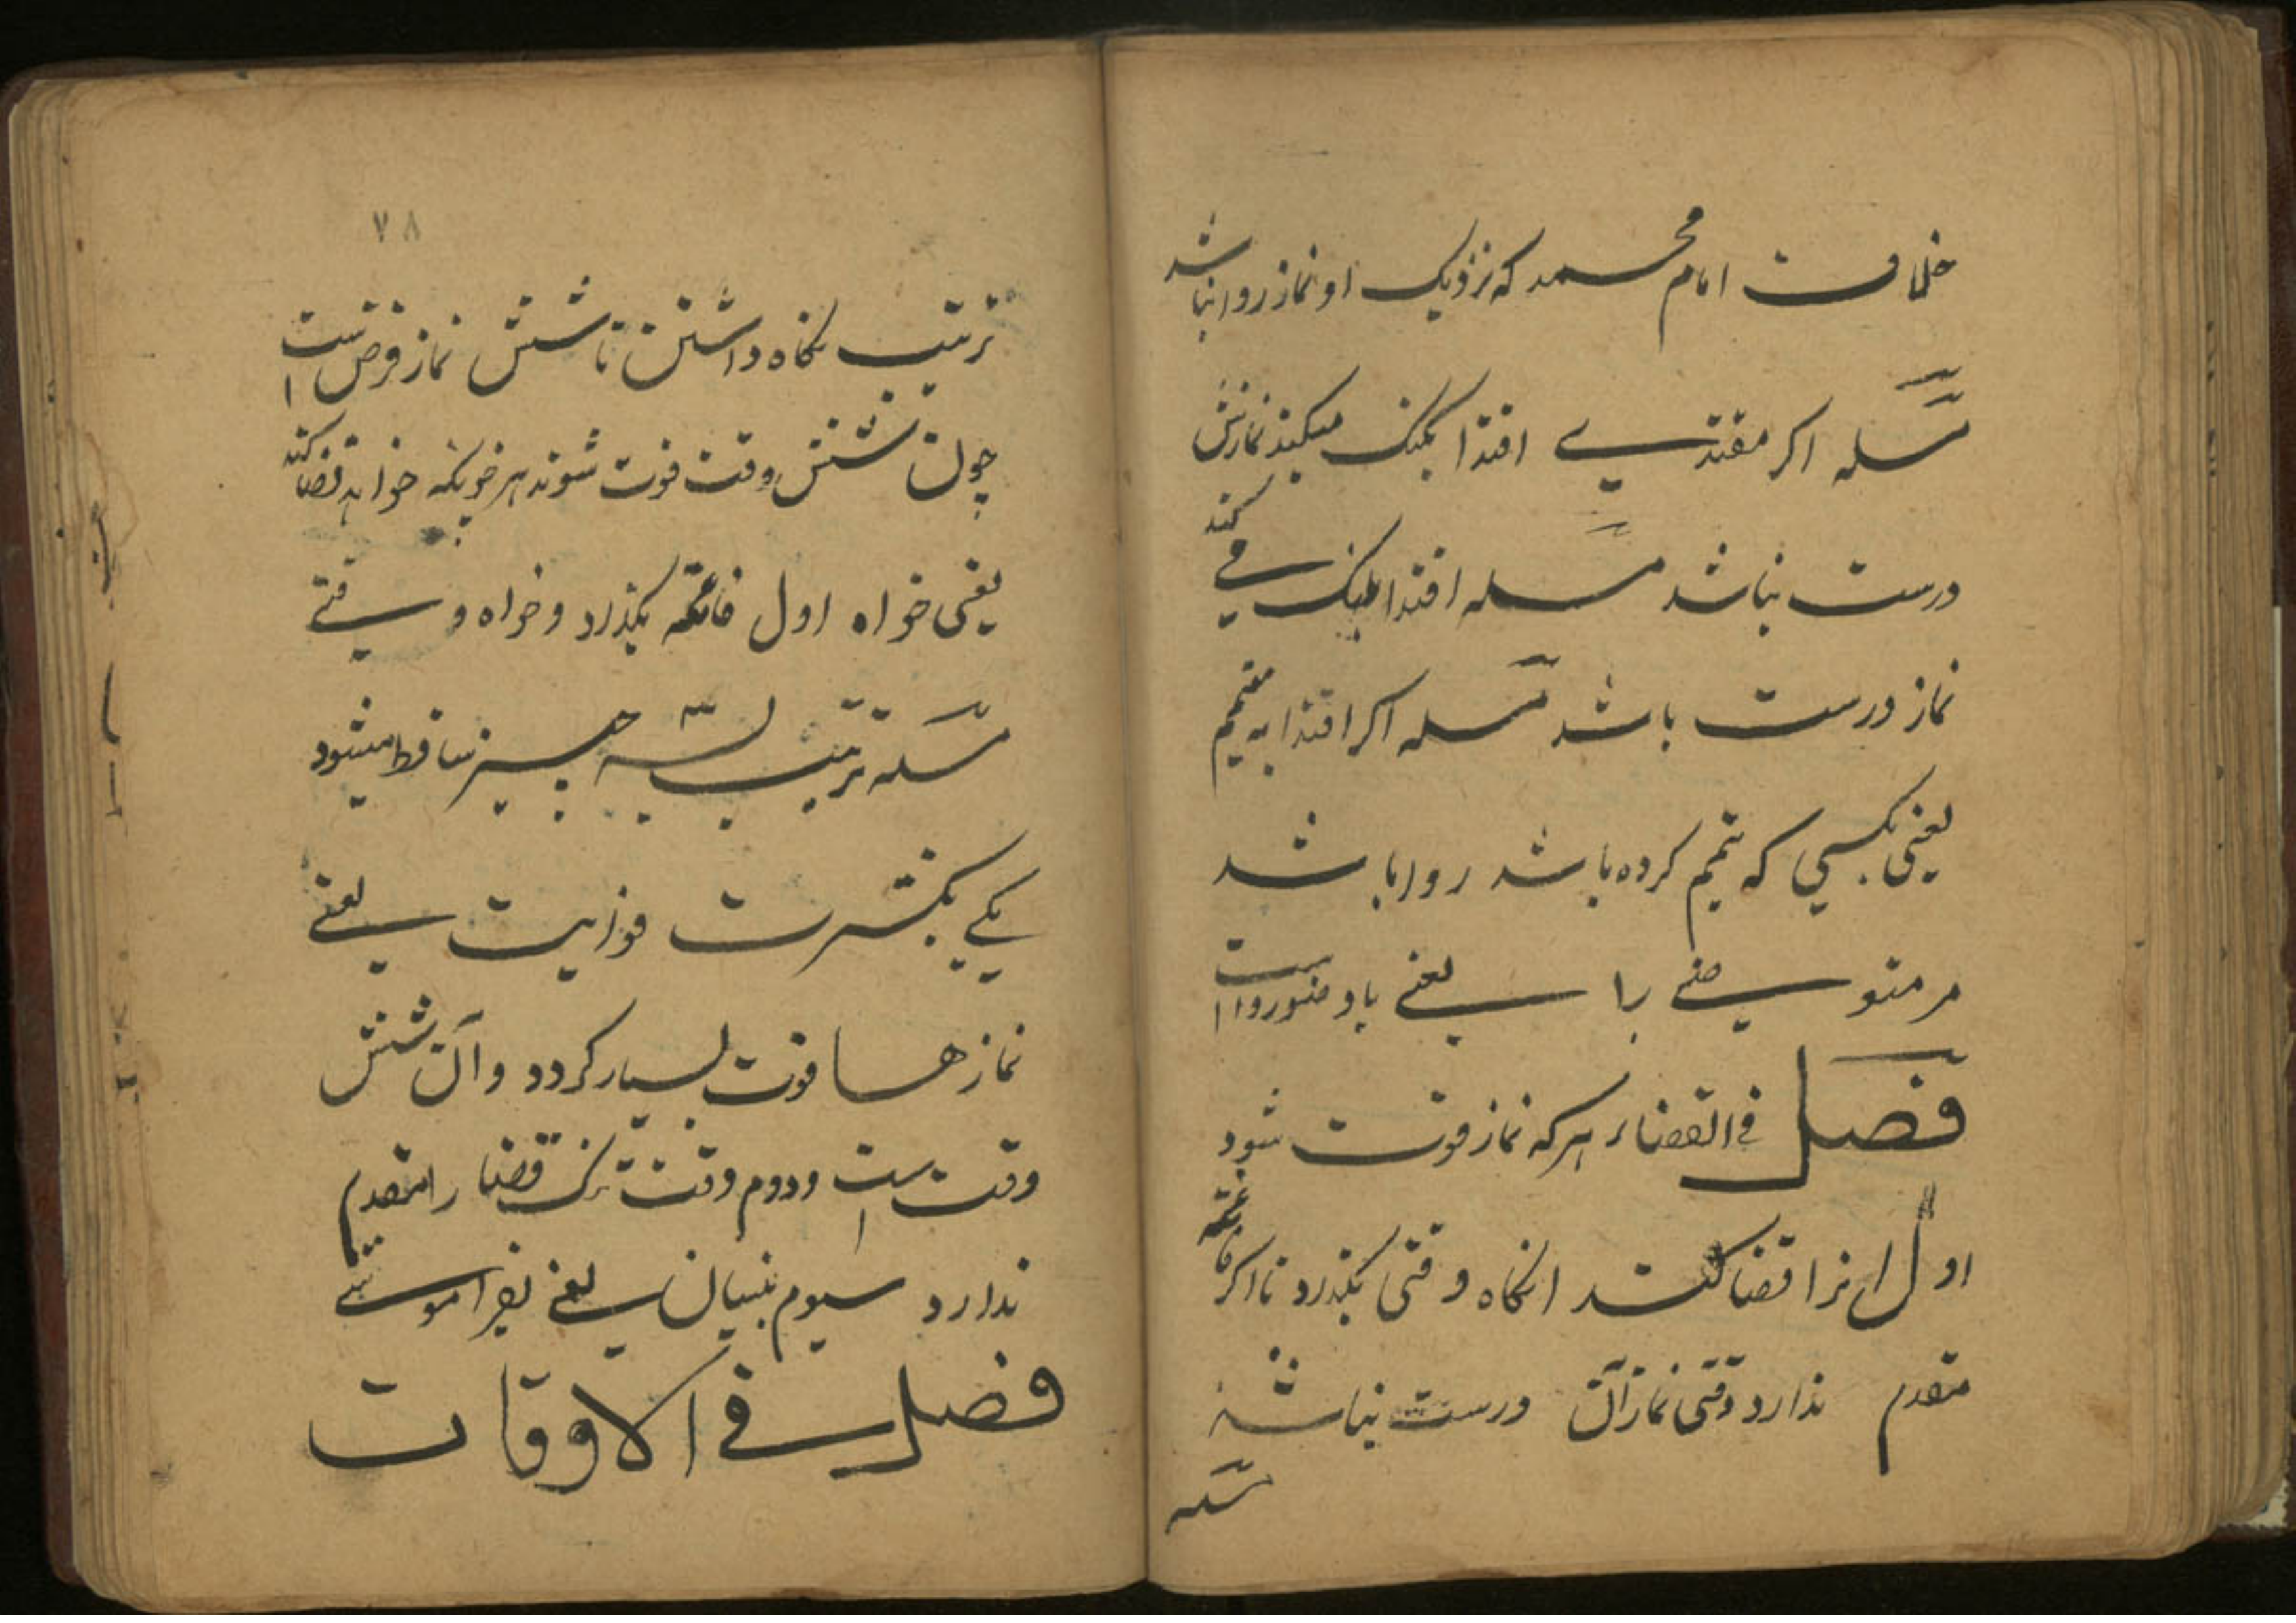 خلاف امام محمد که نزدیک او نماز روا نباشد
مسله اکر مقتدی اقتدا بکنک میکند نمازش
درست نباشد مسله اقتدا بلنک می کند
نماز درست باشد مسله اکر اقتدا به متیمم
یعنی بکسی که تیمم کرده باشد روا باشد
مر متوضی را یعنی باوضو روا است
فصل فی القضاء هر که نماز فوت شود
اول انرا قضا کند انکاه وقتی بکذرد تا اکر فائته
مقدم ندارد وقتی نماز آن درست نباشد
مسله
۷۸
ترتیب نکاه داشتن تا شش نماز فرض است
چون شش وقت فوت شوند هر خویکه خواهد قضا کند
یعنی خواه اول فائته بکذرد و خواه وقتی
مسله ترتیب بسه چیز ساقط میشود
یکی بکثرت فوایت یعنی
نماز ها فوت بسیار کردد و آن شش
وقت است و دوم وقت تنک قضا را مقدم
ندارد سیوم بنسیان یعنی بفراموشی
فصل فی الاوقات